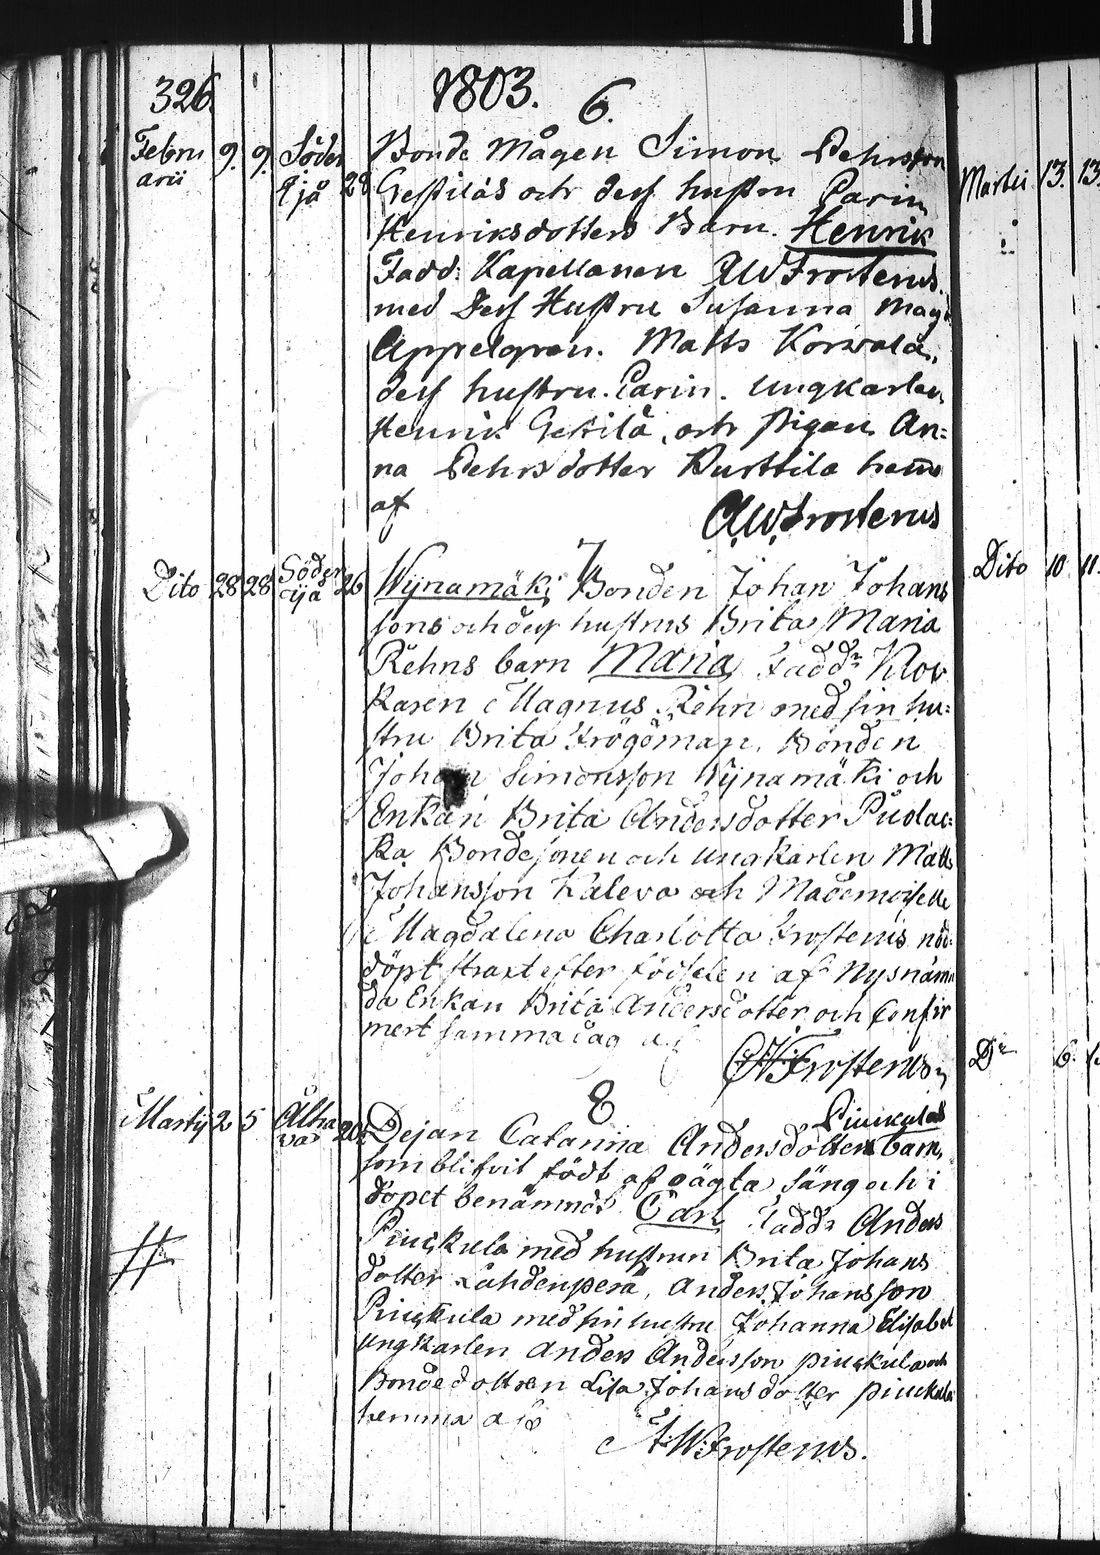 326. 1803.
6.
Februarii 9. 9. Söder Ejå 28 Bonde Mågen Simon Pehrsson
Gestilás och dess hustru Carin
Henriksdotters Barn. Henrik
Fadd: Kapellanen A W Frosterus.
med Dess Hustru Susanna Magd
Appelgren. Matts Korwala,
dess hustru Carin. ungkarlen
Henrik Gestilä, och pigan An=
na Pehrsdotter Kurttila hem
af
A.W. Frosterus
7
Dito 28 28 Söder ejå 26 Wynamäki Bonden Johan Johans
sons och dess hustrus Brita Maria
Rehns barn Maria, Fadd:r Kloc
karen Magnus Rehn med sin hu=
stru Brita Frögöman, Bonden
Johan Simonsson Wynamäki och
Enkan Brita Andersdotter Pudac=
ka Bondesonen och ungkarlen Matts
Johansson Kaleva och Mademoiselle
Magdalena Charlotta Frosterus, nöd
döpt straxt efter födselen af Nysnämn
da Enkan Brita Andersdotter och Confir
mert samma dag af
A W Frosterus
8
Martij 2 5 Alha vas 20 Dejan Catarina Andersdotters Piuckulas barn,
som blifvit födt af oägta säng och i
döpet benämndt Carl, Fadd:r Anders
Piuckula med hustrun Brita Johans
dotter Lähdenperä, Anders Johansson
Piuckula med sin hustru Johanna Elisabet
ungkarlen Anders Andersson piuckula och
Bondedottren Lisa Johansdotter piuckula
hemma döpt
A:W:Frosterus.
Martii 13. 13.
Dito 10 11.
D:o 6.